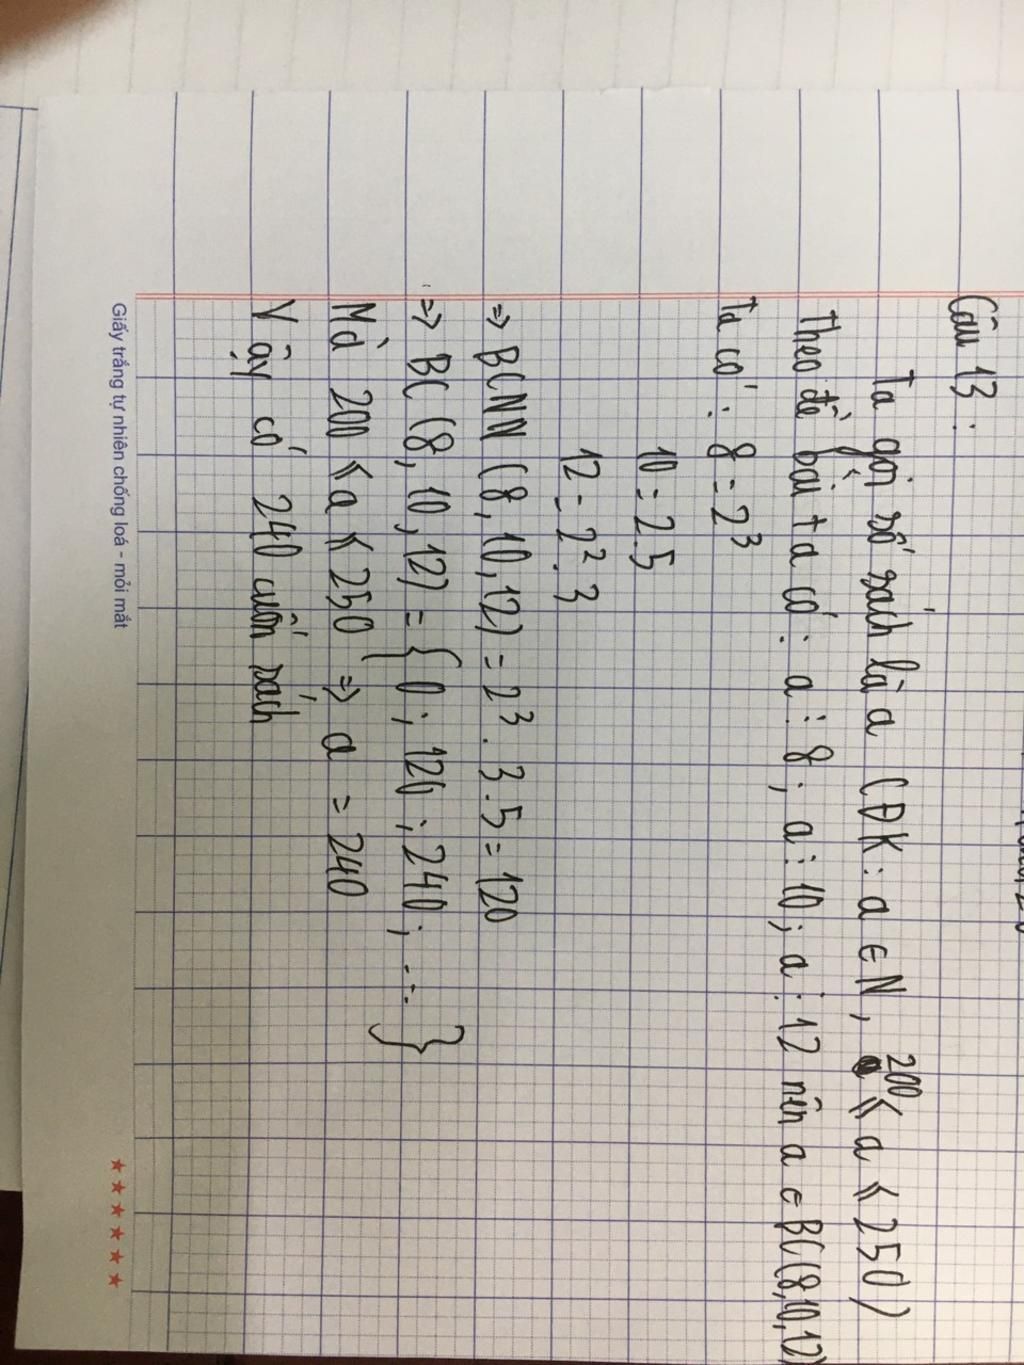 Câu 13:
Ta gọi số sách là a (ĐK: a ∈ N, 200 ≤ a ≤ 250)
Theo đề bài ta có: a ⋮ 8; a ⋮ 10; a ⋮ 12 nên a ∈ BC(8,10,12)
Ta có: 8 = 2³
10 = 2.5
12 = 2².3
=> BCNN (8, 10, 12) = 2³.3.5 = 120
=> BC (8, 10, 12) = {0; 120; 240; ...}
Mà 200 ≤ a ≤ 250 => a = 240
Vậy có 240 cuốn sách
Giấy trắng tự nhiên chống loá - mỏi mắt